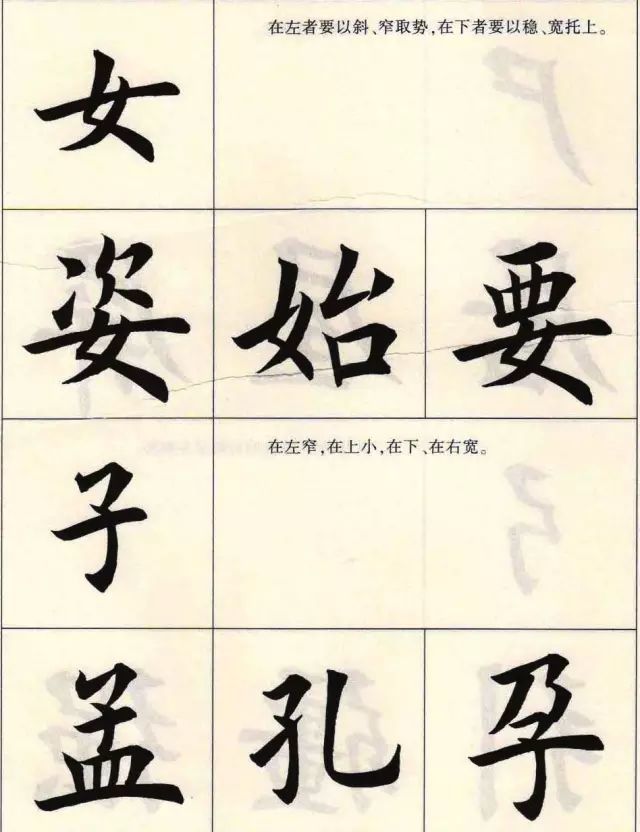 女
在左者要以斜、窄取势,在下者要以稳、宽托上。
姿 始 要
子
在左窄,在上小,在下、在右宽。
孟 孔 孕